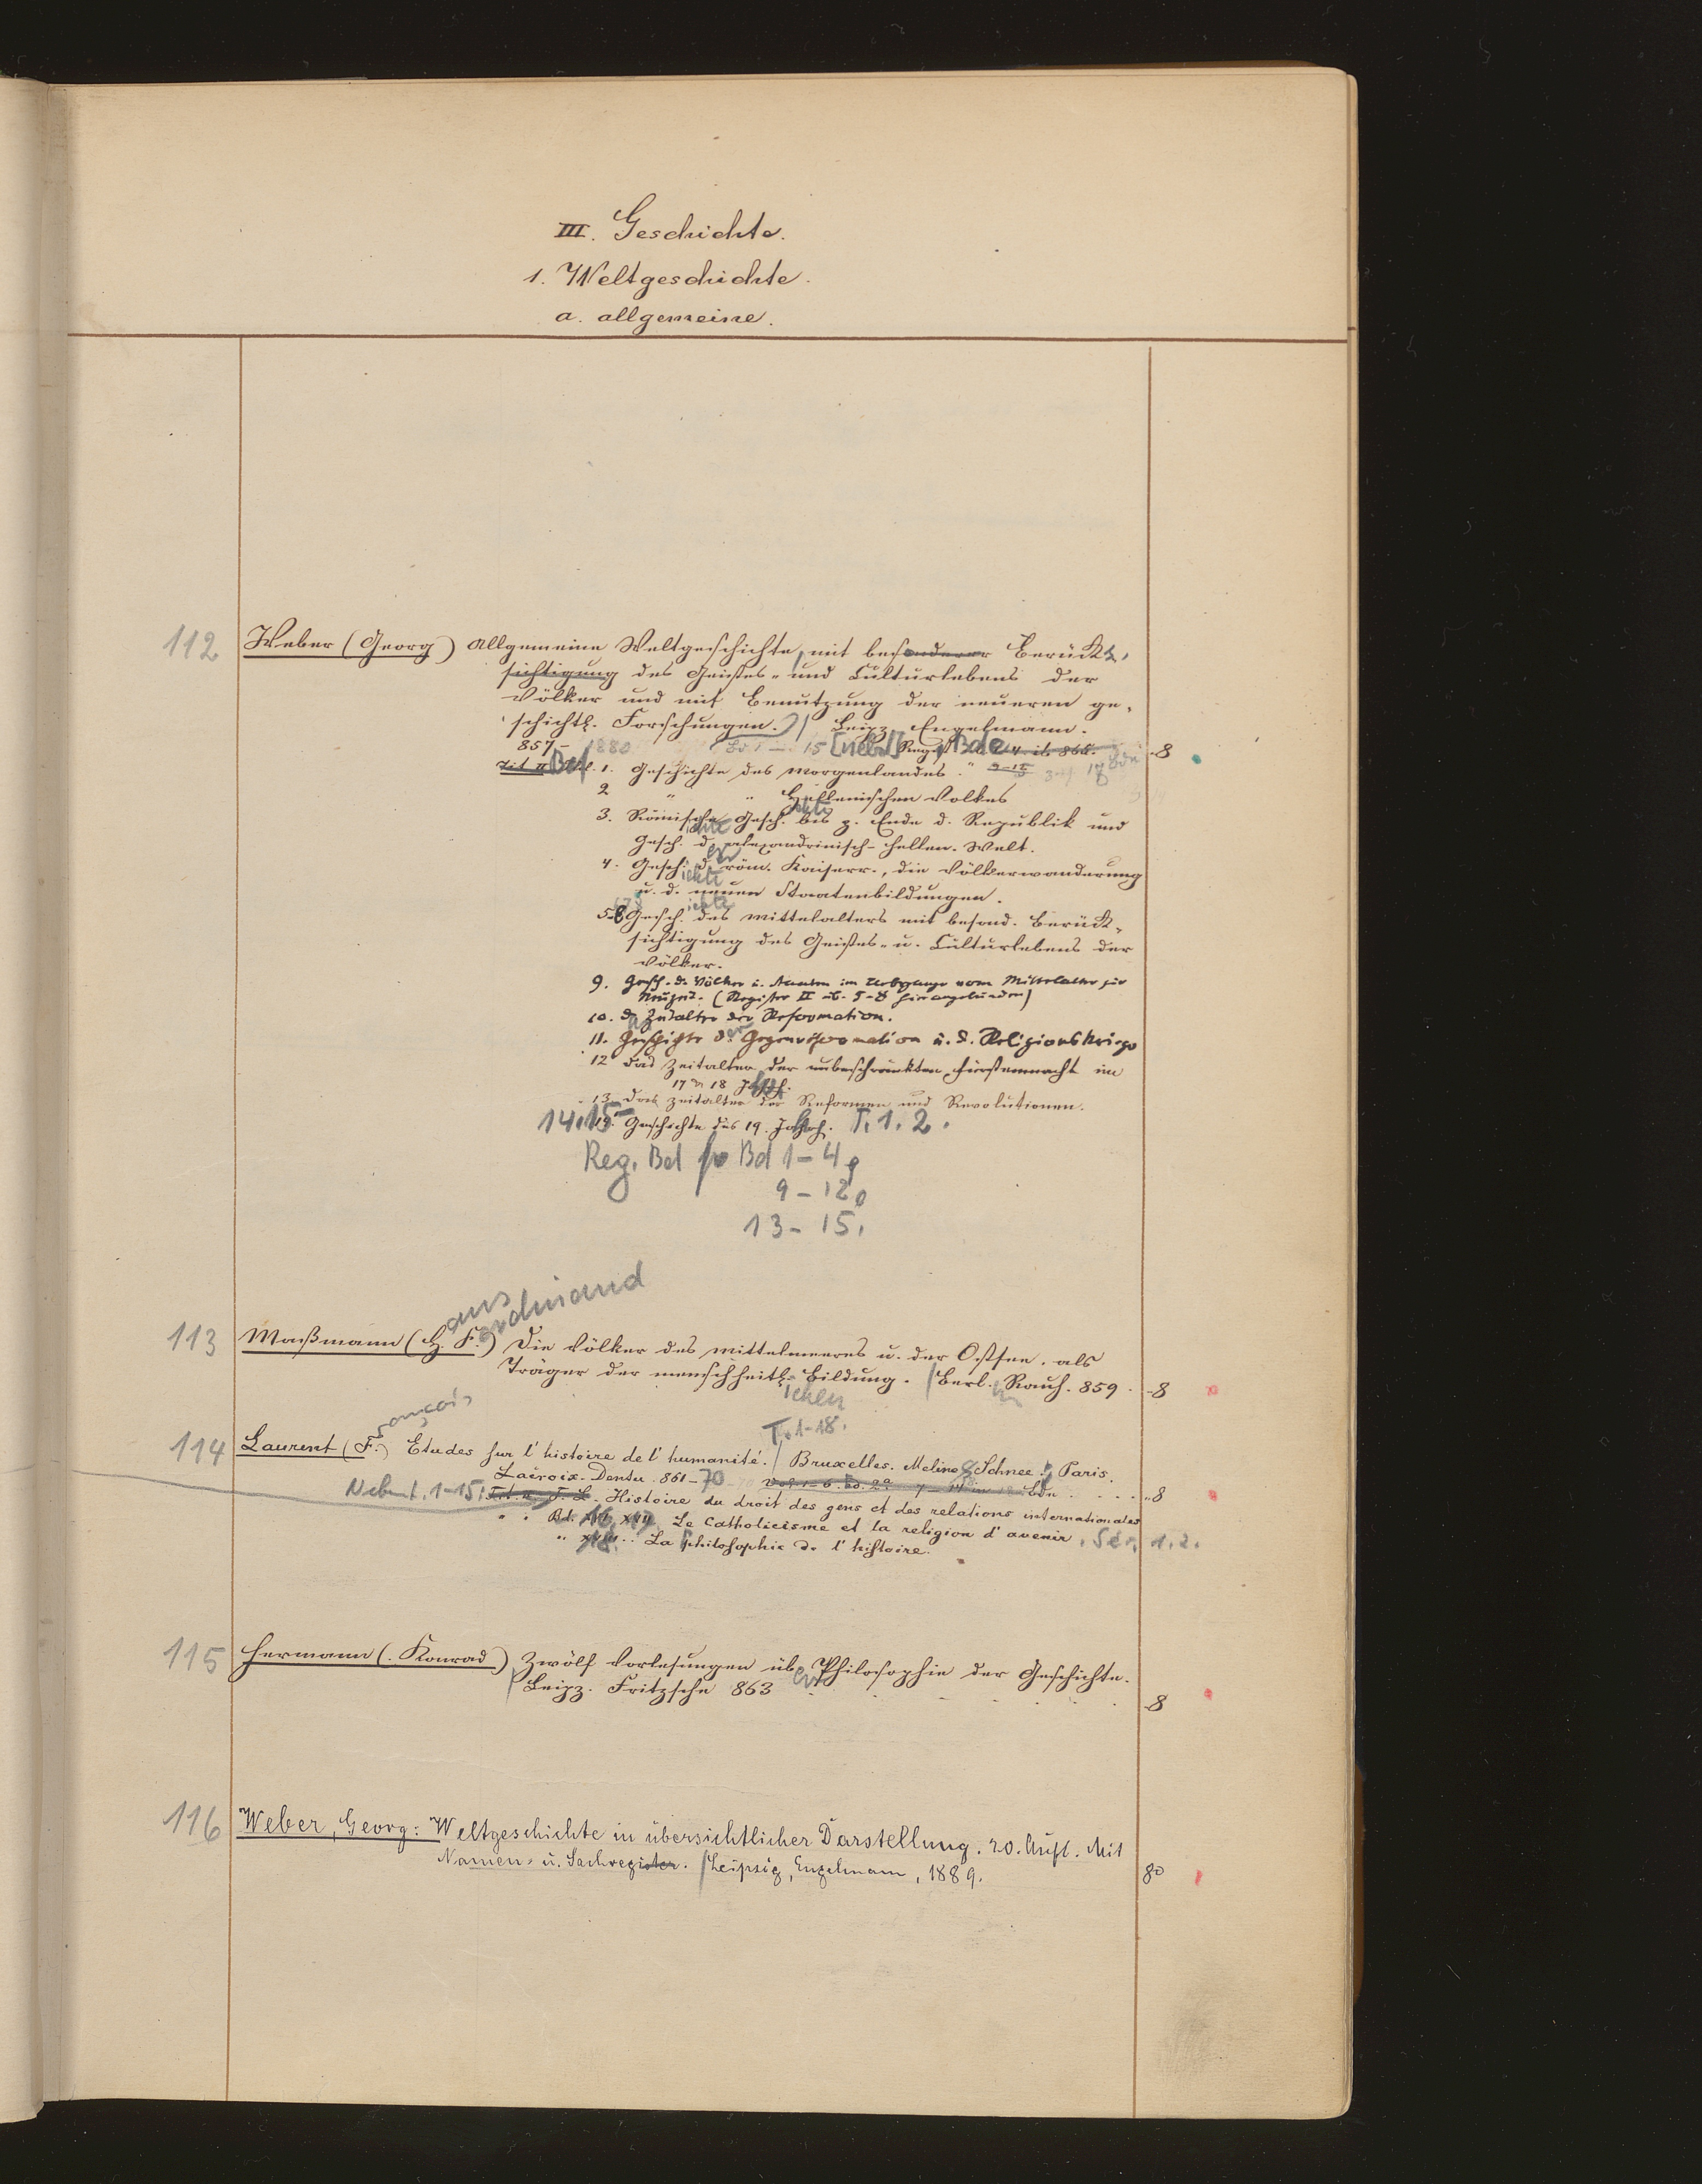 III. Geschichte.
1. Weltgeschichte.
a. allgemeine.
112 Weber (Georg) Allgemeine Weltgeschichte, mit besonderer Berück-
sichtigung des Geistes- und Culturlebens der
Völker und mit Benutzung der neueren ge-
schichtl. Forschungen. Leipz. Engelmann.
857 - 1880 Bd 1 - 15 [nebst] Regist Bde -8
Bd 1. Geschichte des Morgenlandes.
2 " " Hellenischen Volkes
3. Römische Gesch. bis z. Ende d. Republik und
Gesch. d. alexandrinisch-hellen. Welt.
4. Gesch. d. röm. Kaiserr., die Völkerwanderung
u. d. neuen Staatenbildungen.
5-8 Gesch. des Mittelalters mit besond. Berück-
sichtigung des Geistes- u. Culturlebens der
Völker.
9. Gesch. d. Völker u. Staaten im Uebergange vom Mittelalter zur
Neuzeit. (Register II üb. 5-8 hier angebunden)
10. D. Zeitalter der Reformation.
11. Geschichte der Gegenreformation u. d. Religionskriege
12 Das Zeitalter der unbeschränkten Fürstenmacht im
17 n 18 Jahrh.
13 Das Zeitalter der Reformen und Revolutionen.
14.15 Geschichte des 19. Jahrh. T. 1. 2.
Reg. Bd Bd 1-4,
9-12,
13-15.
ans erdinand
113 Maßmann (H. F.) Die Völker des Mittelmeeres u. der Ostsee. als
Träger der menschheitl. Bildung. Berl. Rauh. 859. -8
ichen
rançois T. 1-18.
114 Laurent (F.) Etudes sur l'histoire de l'humanité. Bruxelles. Meline Schnee; Paris.
Lacroix. Dentu. 861-70 -8
Nebent. 1-15: Histoire du droit des gens et des relations internationales
" " Bd. 16, 17 Le Catholicisme et la religion d'avenir. Sér. 1.2.
" 18. La philosophie de l'histoire.
115 Hermann (Konrad) Zwölf Vorlesungen über Philosophie der Geschichte.
Leipz. Fritzsche 863 -8
116 Weber, Georg: Weltgeschichte in übersichtlicher Darstellung. 20. Aufl. Mit
Namen- u. Sachregister. Leipzig, Engelmann, 1889. 8°